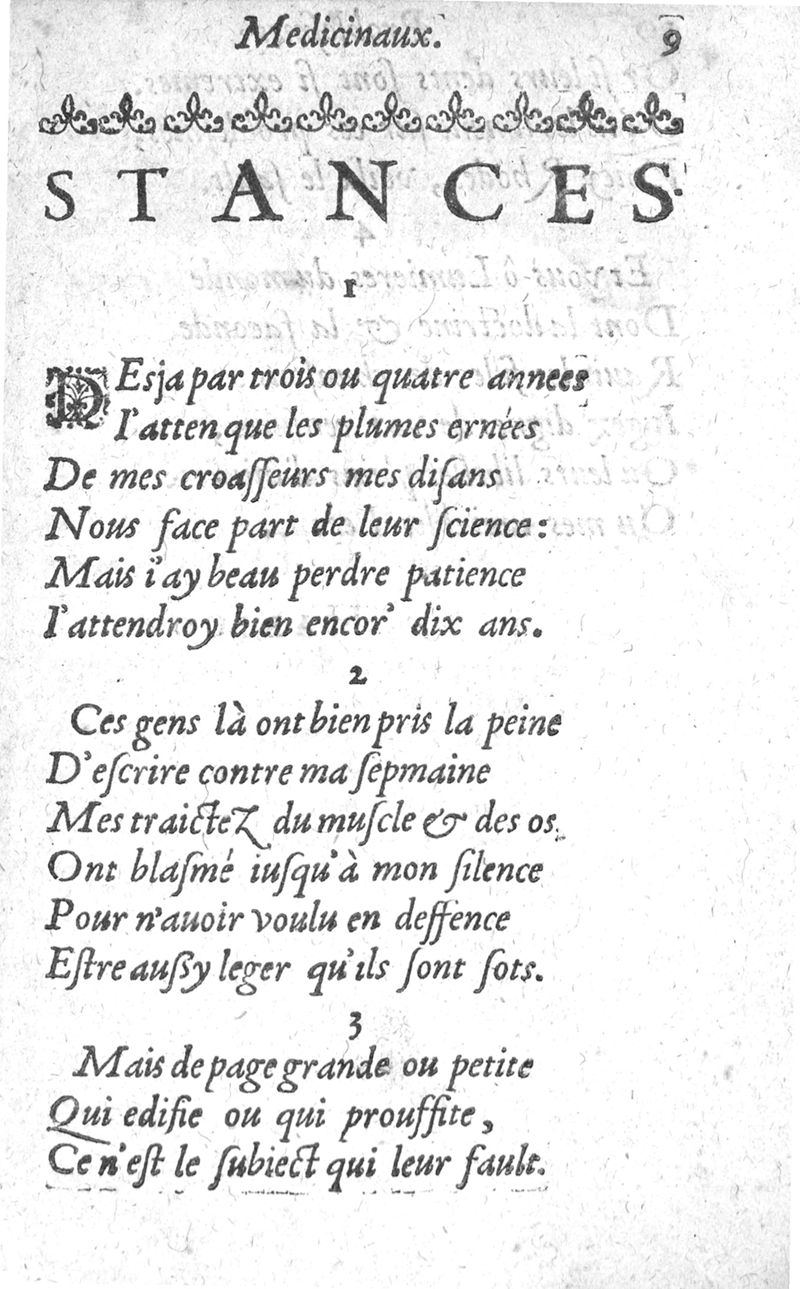 Medicinaux. 9
STANCES.
1
DEsja par trois ou quatre annees
I'atten que les plumes ernées
De mes croaſſeürs mes diſans
Nous face part de leur ſcience:
Mais i'ay beau perdre patience
I'attendroy bien encor' dix ans.
2
Ces gens là ont bien pris la peine
D'eſcrire contre ma ſepmaine
Mes traictez du muſcle & des os.
Ont blaſmé iuſqu'à mon ſilence
Pour n'auoir voulu en deffence
Eſtre auſſy leger qu'ils ſont ſots.
3
Mais de page grande ou petite
Qui edifie ou qui prouffite,
Ce n'eſt le ſubiect qui leur fault.